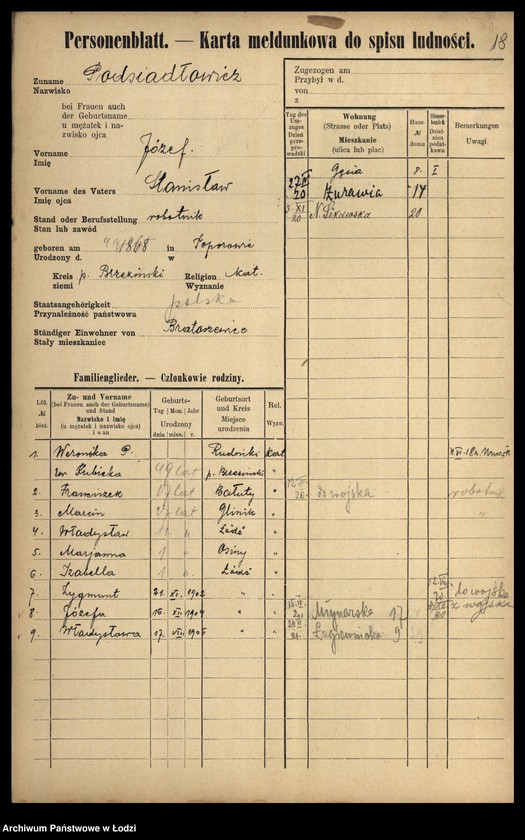 Personenblatt. — Karta meldunkowa do spisu ludności.
18
Zuname Podsiadłowicz
Nazwisko
bei Frauen auch
der Geburtsname
u mężatek i na-
zwisko ojca
Vorname Józef.
Imię
Vorname des Vaters Stanisław
Imię ojca
Stand oder Berufsstellung robotnik
Stan lub zawód
geboren am 1868 in
Urodzony d. w
Kreis p. Brzeziński Religion kat.
ziemi Wyznanie
Staatsangehörigkeit polska
Przynależność państwowa
Ständiger Einwohner von Bratoszewice
Stały mieszkaniec
Zugezogen am
Przybył w d.
von
z
Tag des Um-
zuges
Dzień
prze-
prowadzki
Wohnung
(Strasse oder Platz)
Mieszkanie
(ulica lub plac)
Haus-
№
domu
Steuer-
bezirk
Dziel-
nica
podatkowa
Bemerkungen
Uwagi
Gęsia 8. I
20 Żurawia 14
XI 20 20
Familienglieder. — Członkowie rodziny.
Lfd.
№
bież.
Zu- und Vorname
(bei Frauen auch der Geburtsname)
und Stand
Nazwisko i imię
(u mężatek i nazwisko ojca)
i stan
Geburts-
Tag Mon. Jahr
Urodzony
dnia mies. r.
Geburtsort
und Kreis
Miejsce
urodzenia
Rel.
Wyzn.
1. Weronika P. kat
zm. Kubicka 49 lat p. Brzeziński "
2. Franciszek 17 lat Bałuty " 20. do wojska
3. Marcin lat Glinik "
4. Władysław Łódź "
5. Marjanna Osiny "
6. Izabella Łódź "
7. Zygmunt 21. XI. 1902 " " do wojska
8. Józefa 16. XII 1904 " " 21 Młynarska 17 z wojska
9. Władysława 17. VIII. 1906 " " 21. Łagiewnicka 9
Archiwum Państwowe w Łodzi